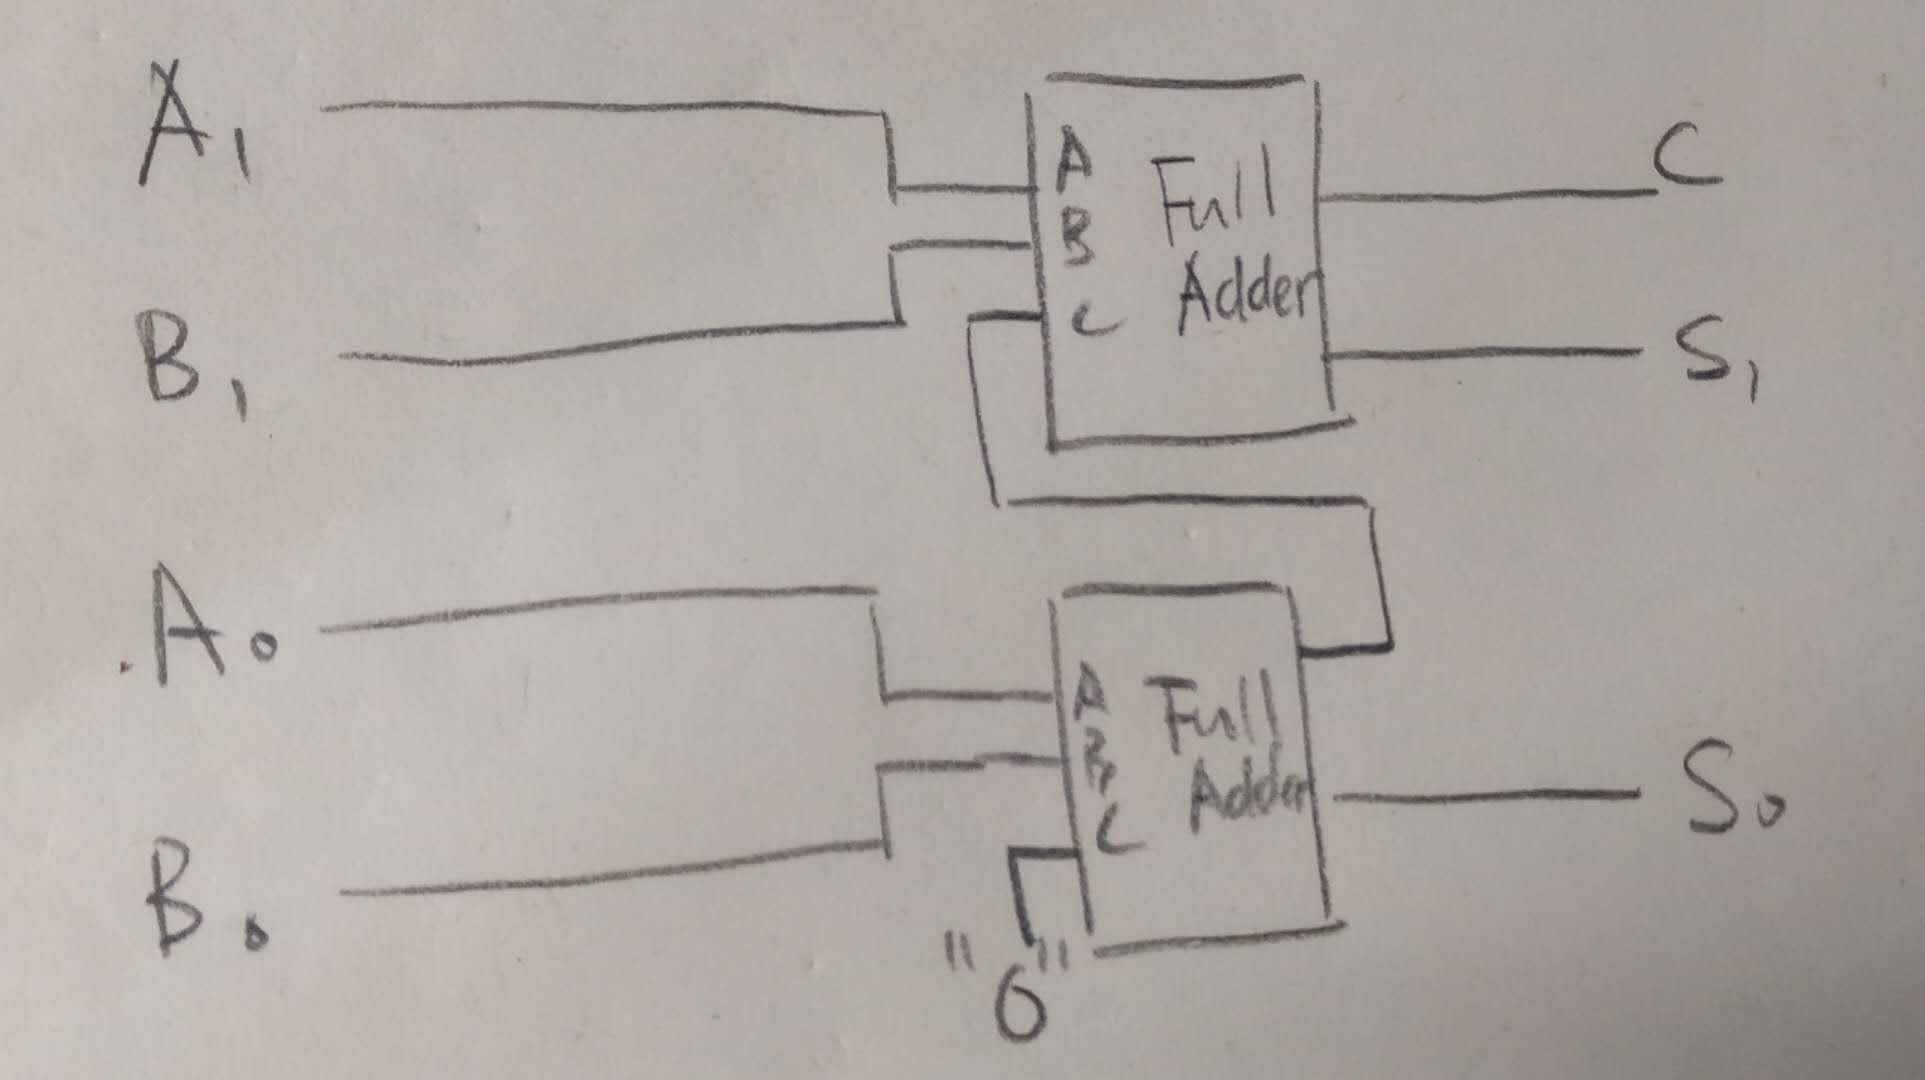 A₁
B₁
A
B
C
Full
Adder
C
S₁
A₀
B₀
A
B
C
Full
Adder
S₀
"0"